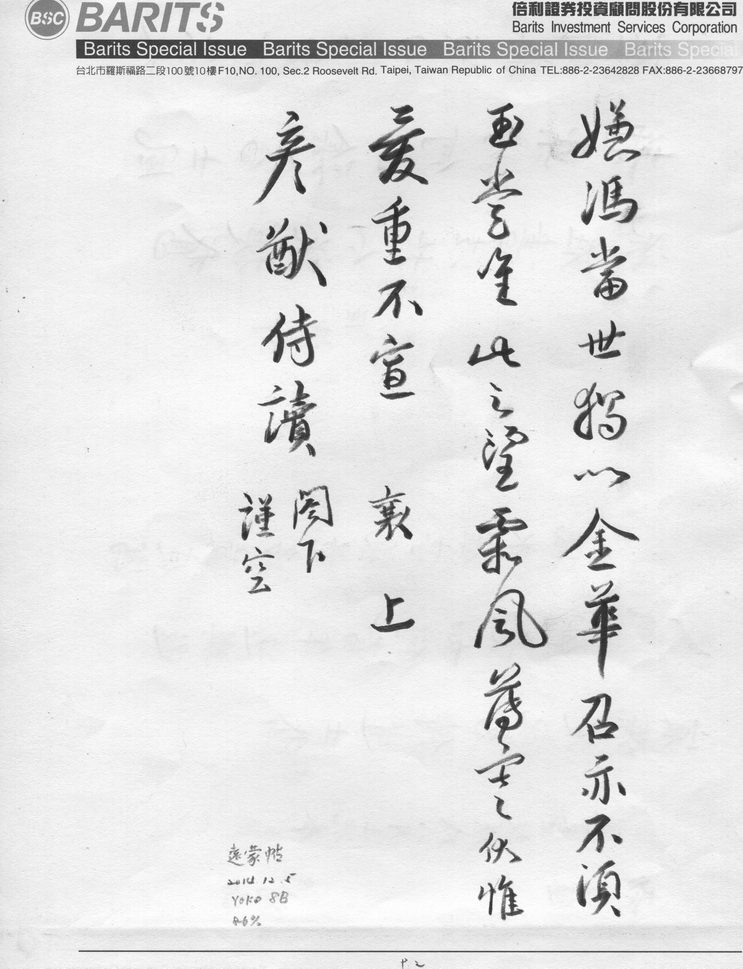 BSC BARITS
倍利證券投資顧問股份有限公司
Barits Investment Services Corporation
Barits Special Issue Barits Special Issue Barits Special Issue Barits Special
台北市羅斯福路二段100號10樓F10,NO. 100, Sec.2 Roosevelt Rd. Taipei, Taiwan Republic of China TEL:886-2-23642828 FAX:886-2-23668797
嫌馮當世獨以金華召亦不須
玉堂唯此之望霜風薄寒伏惟
愛重不宣 襄上
彥猷侍讀 閣下
謹空
遠蒙帖
2014.12.5
YOKO 8B
46%
P.2